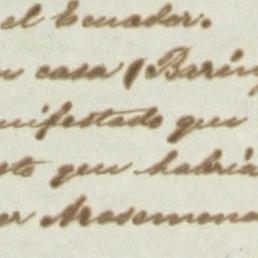 el Ecuador.
casa (Barin
nifestado que
sto que habria
er Arosemena